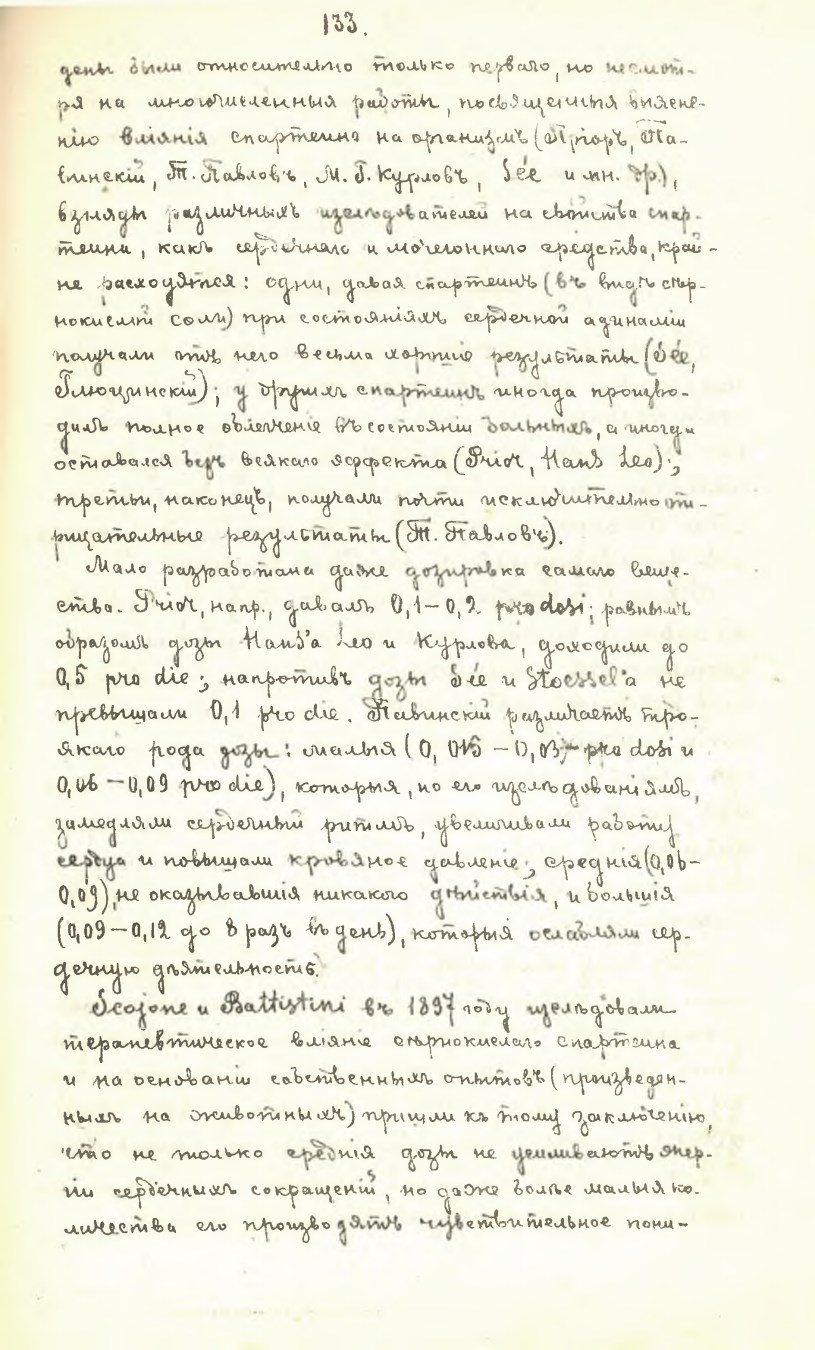 133.
дены были относительно только перваго, но несмот-
ря на многочисленныя работы, посвященныя выясне-
нію вліянія спартеина на организмъ (Пріоръ, Па-
винскій, Т. Павловъ, М. Г. Курловъ, Sée и мн. др.),
взгляды различныхъ изслѣдователей на свойства спар-
теина, какъ сердечнаго и мочегоннаго средства, край-
не расходятся: одни, давая спартеинъ (въ видѣ сѣр-
нокислой соли) при состояніяхъ сердечной адинаміи
получали отъ него весьма хорошіе результаты (Sée,
Глюцинскій); у другихъ спартеинъ иногда произво-
дилъ полное облегченіе въ состояніи больныхъ, а иногда
оставался безъ всякаго эффекта (Prior, Hans Leo);
третьи, наконецъ, получали почти исключительно от-
рицательные результаты (Т. Павловъ).
Мало разработана даже дозировка самаго веще-
ства. Prior, напр., давалъ 0,1—0,2 pro dosi; равнымъ
образомъ дозы Hans'a Leo и Курлова, доходили до
0,5 pro die; напротивъ дозы Sée и Stoessel'a не
превышали 0,1 pro die. Павинскій различаетъ троя-
якаго рода дозы: малыя (0,015 — 0,03 pro dosi и
0,06 — 0,09 pro die), которыя, по его изслѣдованіямъ,
замедляли сердечный ритмъ, увеличивали работу
сердца и повышали кровяное давленіе; среднія (0,06—
0,09), не оказывавшія никакого дѣйствія, и большія
(0,09—0,12 до 8 разъ въ день), которыя ослабляли сер-
дечную дѣятельность.
Scojone и Battistini въ 1897 году изслѣдовали
терапевтическое вліяніе сѣрнокислаго спартеина
и на основаніи собственныхъ опытовъ (произведен-
ныхъ на животныхъ) пришли къ тому заключенію,
что не только среднія дозы не усиливаютъ энер-
гіи сердечныхъ сокращеній, но даже болѣе малыя ко-
личества его производятъ чувствительное пони-